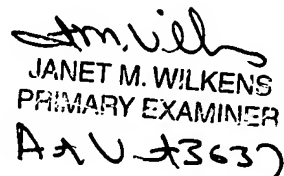 JANET M. WILKENS
PRIMARY EXAMINER
Art U 3637